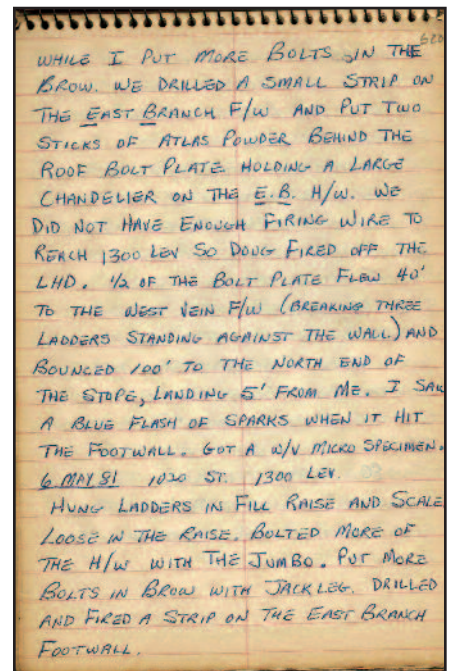 WHILE I PUT MORE BOLTS IN THE
BROW. WE DRILLED A SMALL STRIP ON
THE EAST BRANCH F/W AND PUT TWO
STICKS OF ATLAS POWDER BEHIND THE
ROOF BOLT PLATE HOLDING A LARGE
CHANDELIER ON THE E.B. H/W. WE
DID NOT HAVE ENOUGH FIRING WIRE TO
REACH 1300 LEV SO DOUG FIRED OFF THE
LHD. 1/2 OF THE BOLT PLATE FLEW 40'
TO THE WEST VEIN F/W (BREAKING THREE
LADDERS STANDING AGAINST THE WALL) AND
BOUNCED 100' TO THE NORTH END OF
THE STOPE, LANDING 5' FROM ME. I SAW
A BLUE FLASH OF SPARKS WHEN IT HIT
THE FOOTWALL. GOT A W/V MICRO SPECIMEN.
6 MAY 81 1020 ST. 1300 LEV.
HUNG LADDERS IN FILL RAISE AND SCALE
LOOSE IN THE RAISE. BOLTED MORE OF
THE H/W WITH THE JUMBO. PUT MORE
BOLTS IN BROW WITH JACKLEG. DRILLED
AND FIRED A STRIP ON THE EAST BRANCH
FOOTWALL.